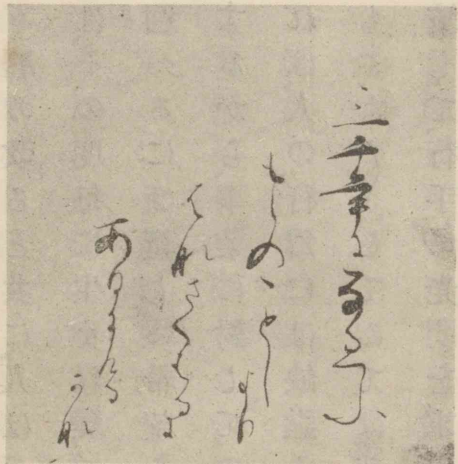 三千年になるてふ
もゝのことしより
はなさくはるに
あひにける
かな